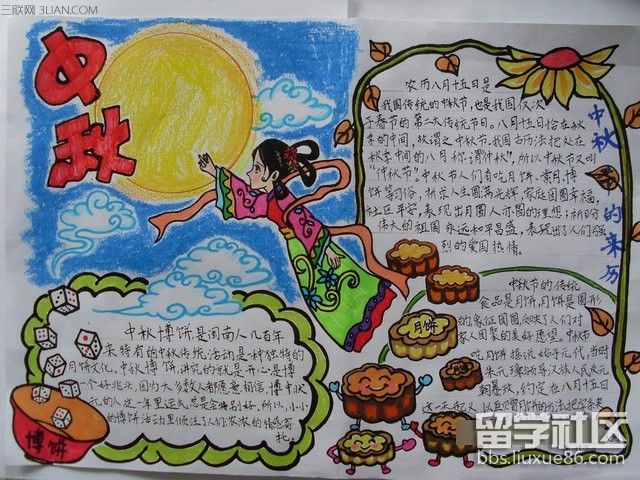 三联网 3LIAN.COM
中秋
中秋的来历
农历八月十五日是
我国传统的中秋节,也是我国仅次
于春节的第二大传统节日。八月十五恰在秋
季的中间,故谓之中秋节,我国古历法把处在
秋季中间的八月称谓"仲秋",所以中秋节又叫
"仲秋节"。中秋节人们有吃月饼、赏月、博
饼等习俗,祈求人生圆满光辉,家庭团圆幸福,
社区平安,表现出月圆人亦圆的理想;祈盼
伟大的祖国永远和平昌盛,表现出了人们强
烈的爱国热情。
中秋节的传统
食品是月饼,月饼是圆形
家人团聚的美好愿望。中秋节
吃月饼据说始于元代,当时
朱元璋领导汉族人民反元
朝暴政,约定在八月十五日
月饼
中秋博饼,是闽南人几百年
来特有的中秋传统活动,是一种独特的
月饼文化。中秋博饼,讲究的就是开心,是博
一个好兆头,因为大多数人都愿意相信,博中状
元的人这一年里运气总是会特别好。所以,小小
的博饼活动里倾注了人们浓浓的情感寄
托。
博饼
留学社区
bbs.liuxue86.com